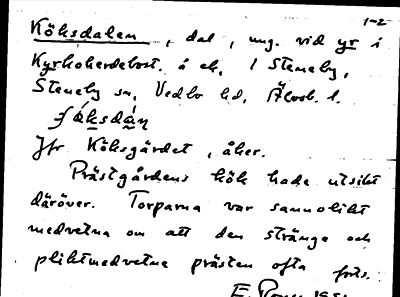 1-2
Köksdalen, dal, ung. vid yr i
Kyrkoherdebost. å ek. 1 Steneby,
Steneby sn, Vedbo hd, Älvsb. l.
Jfr Köksgärdet, åker.
Prästgårdens kök hade utsikt
däröver. Torparna var sannolikt
medvetna om att den stränge och
pliktmedvetne prästen ofta forts.
E.